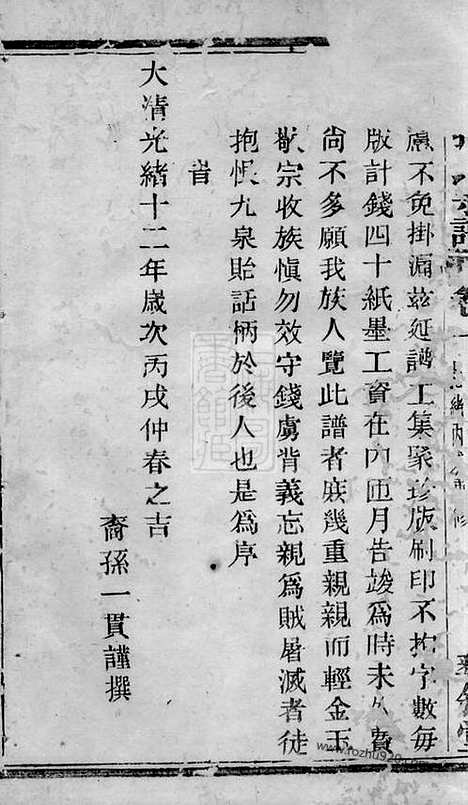 慮不免掛漏茲延譜工集聚珍版刷印不拘字數每
版計錢四十紙墨工資在內匝月告竣爲時未久費
尚不多願我族人覽此譜者庶幾重親親而輕金玉
敬宗收族愼勿效守錢虜背義忘親爲賊屠滅者徒
抱恨九泉貽話柄於後人也是爲序
旹
大清光緒十二年歲次丙戌仲春之吉
裔孫一貫謹撰
www.rozhu920.com